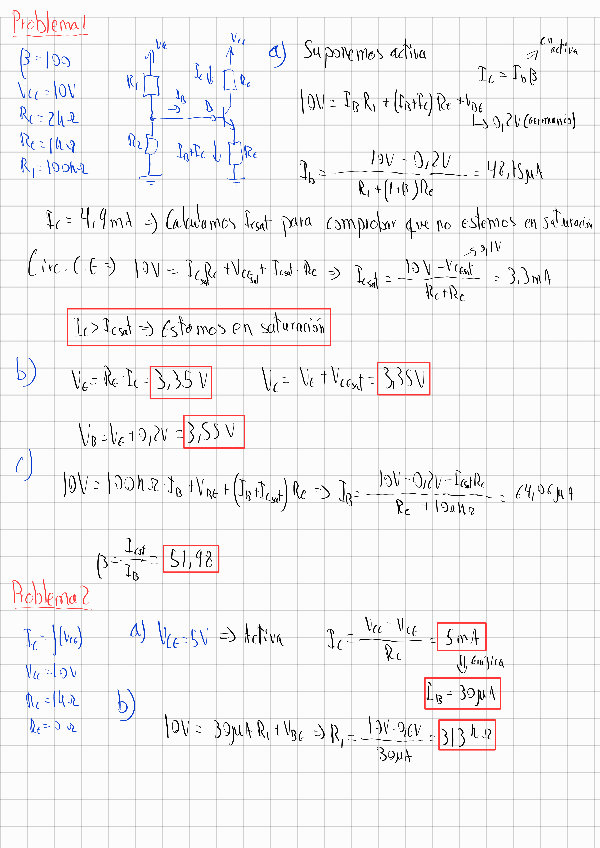 Problema 1
β=100
Vcc=10V
Rc=2kΩ
Re=1kΩ
R1=100kΩ
Vcc Vcc
R1 Ic↓ Rc
IB
R2 IB+Ic↓ Re
a) Suponemos activa
en activa
Ic=IBβ
10V = IB R1 + (IB+Ic) Re + VBE
↳0,2V (Germanio)
IB = (10V-0,2V)/(R1+(1+β)Re) = 48,75μA
Ic = 4,9mA => Calculamos Icsat para comprobar que no estemos en saturación
Circ. CE => 10V = Icsat Rc + VCEsat + Icsat·Re => Icsat = (10V-VCEsat)/(Rc+Re) = 3,3mA
Ic>Icsat => Estamos en saturación
b) VE=RE·Ic= 3,35V Vc=VE+VCEsat= 3,35V
VB=VE+0,2V= 3,55V
c) 10V=100kΩ·IB+VBE+(IB+Icsat)Re => IB = (10V-0,2V-IcsatRe)/(Re+100kΩ) = 64,06μA
β = Icsat/IB = 51,98
Problema 2
Ic=f(VCE)
Vcc=10V
Rc=1kΩ
Re=0Ω
a) VCE=5V => Activa Ic = (Vcc-VCE)/Rc = 5mA
↓
IB=30μA
b) 10V = 30μA R1+VBE => R1 = (10V-0,6V)/30μA = 313kΩ